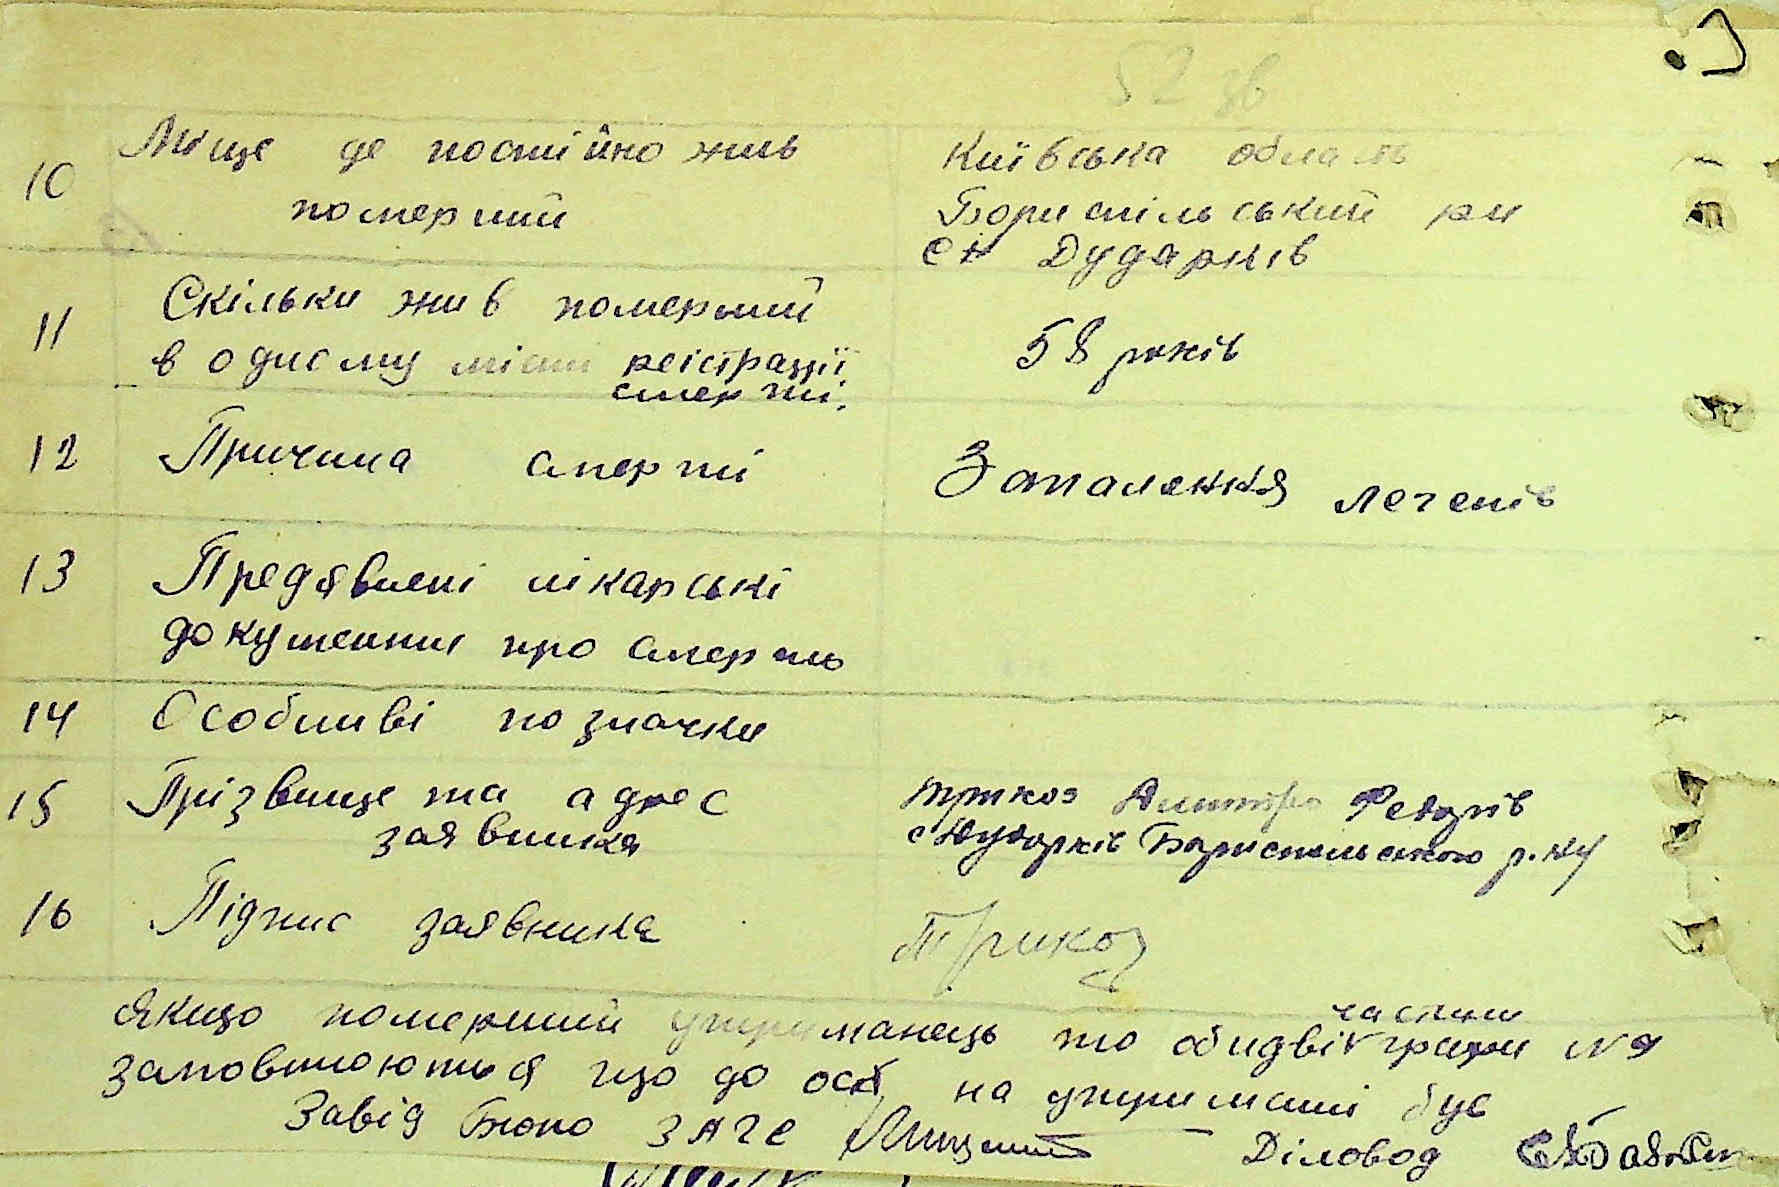 52 зв
10 Місце де постійно жив Київська область
померший Бориспільський р-н
с. Дударків
11 Скільки жив померший
в одному місті реістрації 58 років
смерті.
12 Причина смерті Запалення легенів
13 Предявлені лікарські
документи про смерть
14 Особливі позначки
15 Прізвище та адрес Трикоз Дмитро Федорів
заявника с Дударків Бориспільського р-ну
16 Підпис заявника Трикоз
частини
Якщо померший утриманець то обидві графи №9
заповнюються що до особ на утриманні був
Завід Бюро ЗАГС Діловод